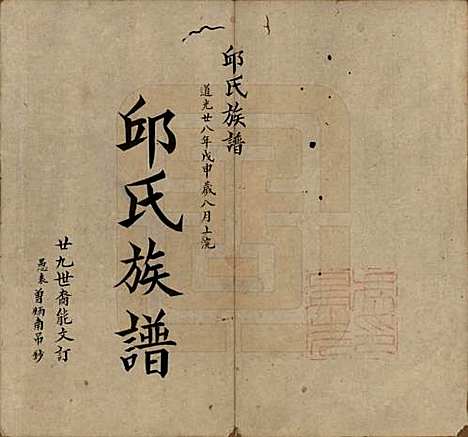 邱氏族譜
道光廿八年戊申歲八月上浣
邱氏族譜
廿九世裔能文訂
愚表曾炳南弔鈔